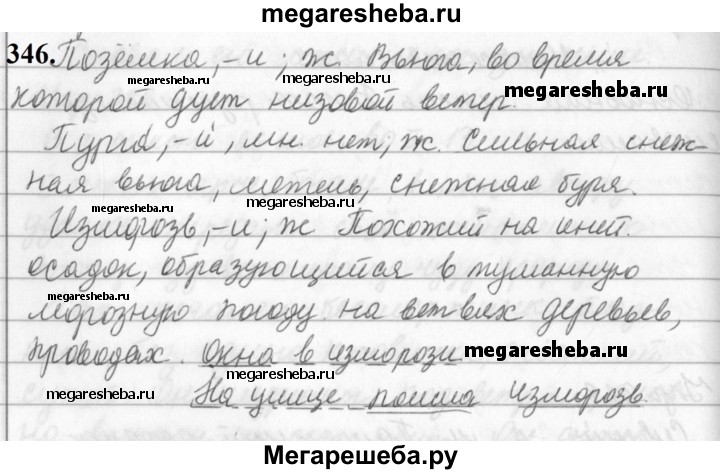 megaresheba.ru
346. Позёмка, -и; ж. Вьюга, во время
megaresheba.ru megaresheba.ru
которой дует низовой ветер.
megaresheba.ru
Пурга́, -и́, мн. нет, ж. Сильная снеж-
ная вьюга, метель, снежная буря.
megaresheba.ru megaresheba.ru
Изморозь, -и; ж Похожий на иней.
осадок, образующийся в туманную
megaresheba.ru
морозную погоду на ветвях деревьев,
проводах. Окна в изморози
megaresheba.ru
На улице пошла изморозь.
megaresheba.ru
Мегарешеба.ру